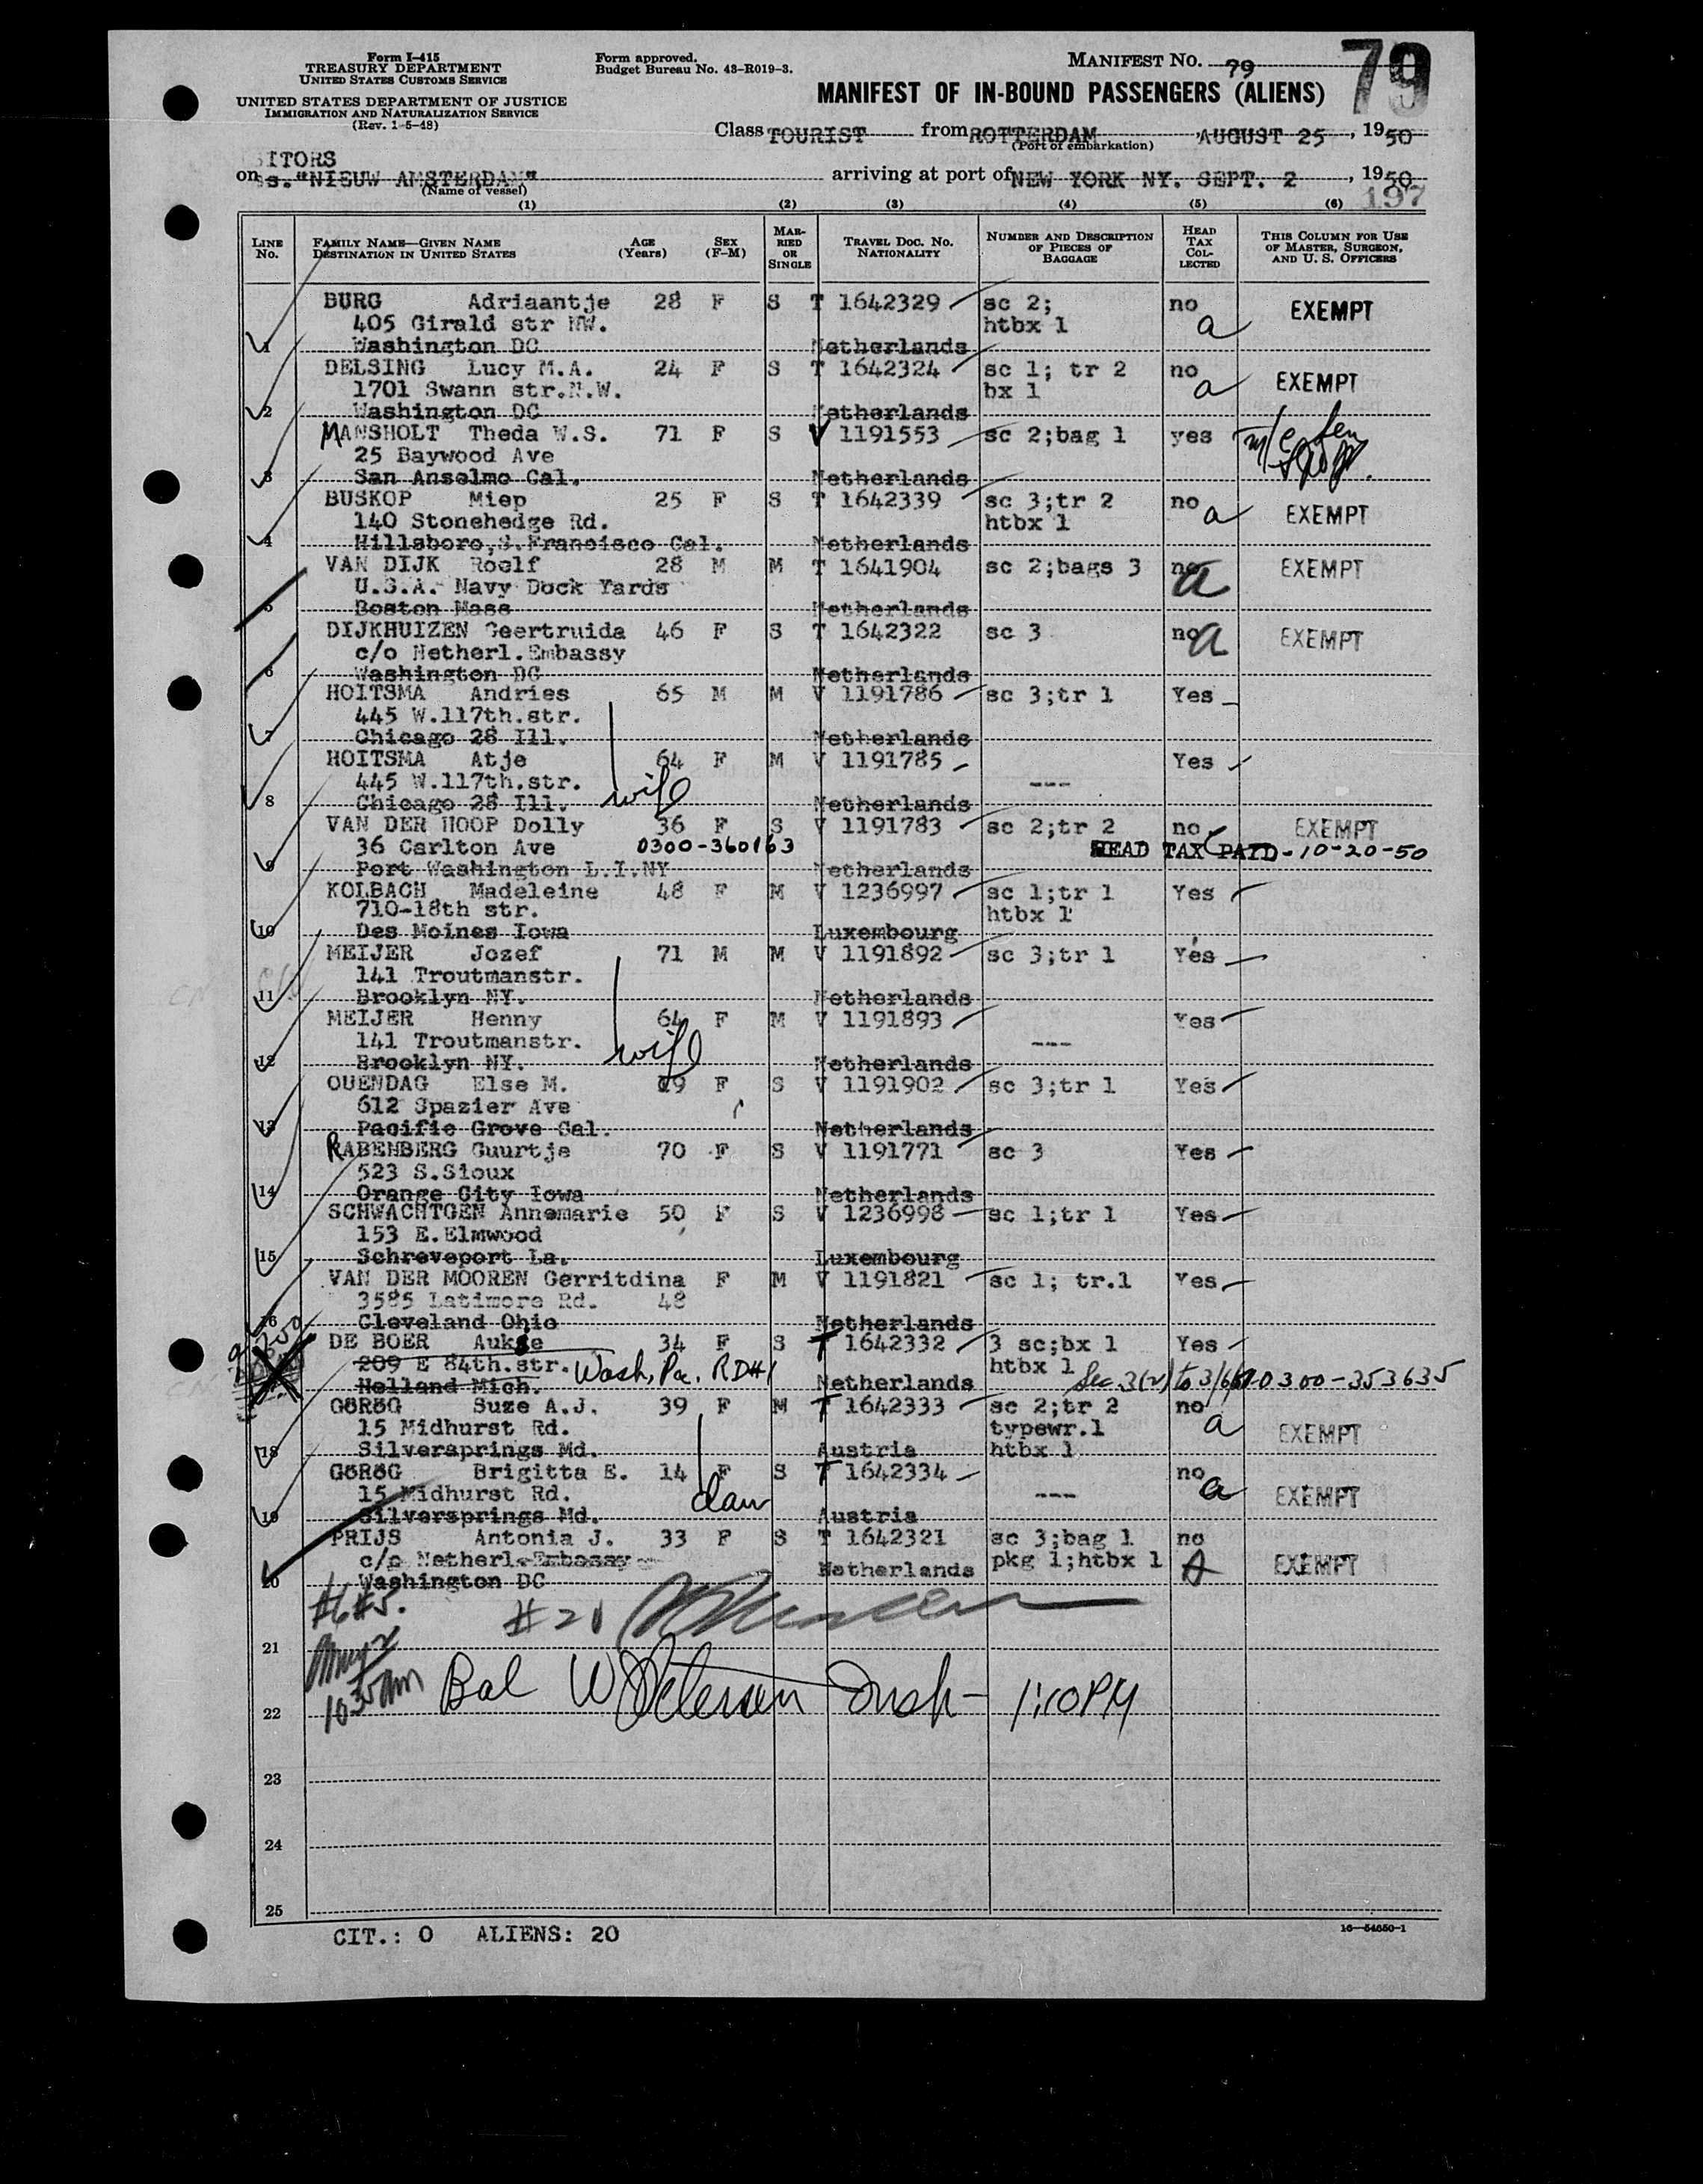 Form I-415
TREASURY DEPARTMENT
UNITED STATES CUSTOMS SERVICE
UNITED STATES DEPARTMENT OF JUSTICE
IMMIGRATION AND NATURALIZATION SERVICE
(Rev. 1-5-48)
Form approved.
Budget Bureau No. 43-R019-3.
MANIFEST NO. 79
79
MANIFEST OF IN-BOUND PASSENGERS (ALIENS)
Class TOURIST from ROTTERDAM AUGUST 25, 1950
(Port of embarkation)
ITORS
on s."NIEUW AMSTERDAM" arriving at port of NEW YORK NY. SEPT. 2, 1950
(Name of vessel)
197
(1) (2) (3) (4) (5) (6)
LINE No. FAMILY NAME—GIVEN NAME DESTINATION IN UNITED STATES AGE (Years) SEX (F-M) MARRIED OR SINGLE TRAVEL DOC. NO. NATIONALITY NUMBER AND DESCRIPTION OF PIECES OF BAGGAGE HEAD TAX COLLECTED THIS COLUMN FOR USE OF MASTER, SURGEON, AND U. S. OFFICERS
BURG Adriaantje 28 F S T 1642329 sc 2; no EXEMPT
405 Girald str NW. htbx 1 a
1 Washington DC Netherlands
DELSING Lucy M.A. 24 F S T 1642324 sc 1; tr 2 no EXEMPT
1701 Swann str.N.W. bx 1 a
2 Washington DC Netherlands
MANSHOLT Theda W.S. 71 F S V 1191553 sc 2;bag 1 yes
25 Baywood Ave
3 San Anselmo Cal. Netherlands
BUSKOP Miep 25 F S T 1642339 sc 3;tr 2 no EXEMPT
140 Stonehedge Rd. htbx 1 a
4 Hillsboro,S.Francisco Cal. Netherlands
VAN DIJK Roelf 28 M M T 1641904 sc 2;bags 3 no EXEMPT
U.S.A. Navy Dock Yards a
5 Boston Mass Netherlands
DIJKHUIZEN Geertruida 46 F S T 1642322 sc 3 no a EXEMPT
c/o Netherl.Embassy
6 Washington DC Netherlands
HOITSMA Andries 65 M M V 1191786 sc 3;tr 1 Yes
445 W.117th.str.
7 Chicago 28 Ill. Netherlands
HOITSMA Atje 64 F M V 1191785 Yes
445 W.117th.str. wife ---
8 Chicago 28 Ill. Netherlands
VAN DER HOOP Dolly 36 F S V 1191783 sc 2;tr 2 no EXEMPT
36 Carlton Ave 0300-360163 HEAD TAX PAID-10-20-50
9 Port Washington L.I.NY Netherlands
KOLBACH Madeleine 48 F M V 1236997 sc 1;tr 1 Yes
710-18th str. htbx 1
10 Des Moines Iowa Luxembourg
MEIJER Jozef 71 M M V 1191892 sc 3;tr 1 Yes
141 Troutmanstr.
11 Brooklyn NY. Netherlands
MEIJER Henny 64 F M V 1191893 Yes
141 Troutmanstr. wife ---
12 Brooklyn NY. Netherlands
OUENDAG Else M. 19 F S V 1191902 sc 3;tr 1 Yes
612 Spazier Ave
13 Pacific Grove Cal. Netherlands
RABENBERG Guurtje 70 F S V 1191771 sc 3 Yes
523 S.Sioux
14 Orange City Iowa Netherlands
SCHWACHTGEN Annemarie 50 F S V 1236998 sc 1;tr 1 Yes
153 E.Elmwood
15 Schreveport La. Luxembourg
VAN DER MOOREN Gerritdina F M V 1191821 sc 1; tr.1 Yes
3585 Latimore Rd. 48
16 Cleveland Ohio Netherlands
DE BOER Aukje 34 F S T 1642332 3 sc;bx 1 Yes
209 E 84th.str. Wash, Pa. RD#1 htbx 1 Sec 3(2) to 3/6/51 0300-353635
Holland Mich. Netherlands
GöRöG Suze A.J. 39 F M T 1642333 sc 2;tr 2 no
15 Midhurst Rd. typewr.1 a EXEMPT
18 Silversprings Md. Austria htbx 1
GöRöG Brigitta E. 14 F S T 1642334 no
15 Midhurst Rd. dau --- a EXEMPT
19 Silversprings Md. Austria
PRIJS Antonia J. 33 F S T 1642321 sc 3;bag 1 no
c/o Netherl.Embassy Netherlands pkg 1;htbx 1 a EXEMPT
20 Washington DC
#6#5. #20
21
10 30 am Bal W Petersen Insp- 1:10PM
22
23
24
25
CIT.: 0 ALIENS: 20
16—54650-1